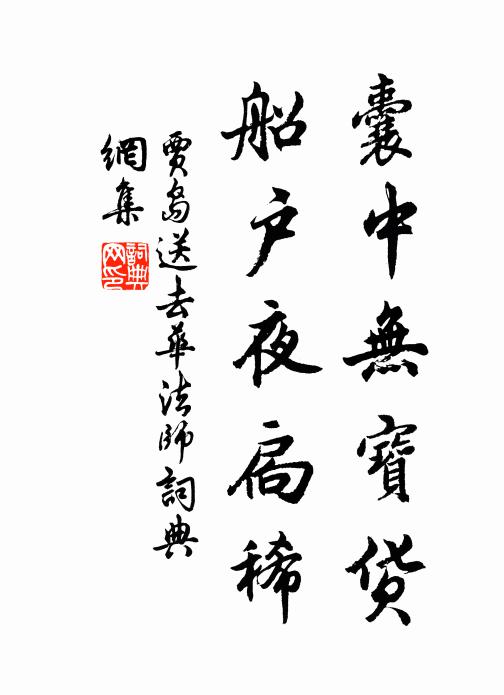 囊中無寶貨
船戶夜扃稀
賈島送去華法師詞典
網集
詞典
网印